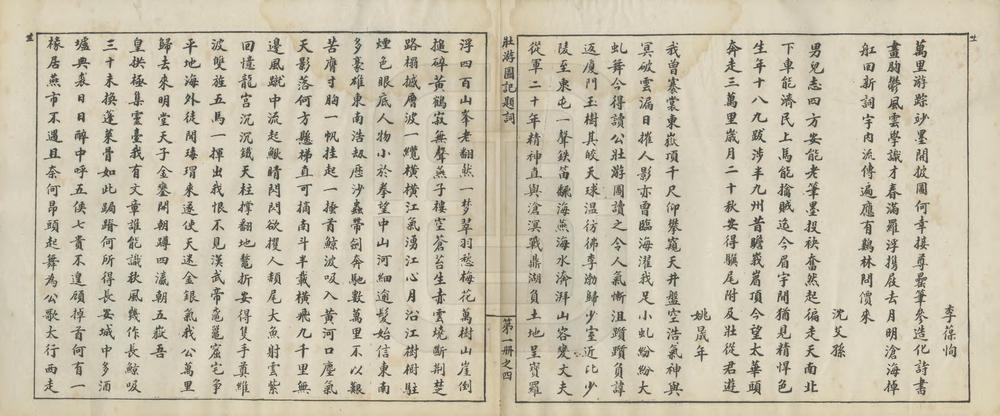 李葆恂
萬里游踪紗墨開披圖何幸接尊罍筆參造化詩書
畫胸鬱風雲學識才春滿羅浮攜屐去月明滄海棹
舡回新詞字內流傳遍應有鷄林問價來
沈艾孫
男兒志四方安能老筆墨投袂奮然起徧走天南北
下車能濟民上馬能擒賊迄今眉宇間猶見精悍色
生年十八九跋涉半九州昔瞻峩眉頂今望太華頭
奔走三萬里歲月二十秋安得驥尾附及壯從君遊
姚晟年
我曾褰裳東嶽頂千尺仰攀窺天井盤空浩氣神與
冥破雲漏日摧人影亦曾臨海濯我足小虬紛紛大
虬舞今得讀公壯游圖讀之令人氣慚沮躓躓負諱
返廈門玉樹其皎天球温彷彿李渤歸少室近比少
陵至東屯一聲鉄笛飜海燕海水淪湃山容變丈夫
從軍二十年精神直與滄溟戰鼎湖負土地呈寶羅
壯游圖記題詞
第一册之四
浮四百山峯老翻然一梦翠羽愁梅花萬樹山崖倒
搥碎黄鶴寂無聲燕子樓空蒼苔生赤雲燒斷荆楚
路榻撼層波一纜橫橫江氣湧江心月沿江樹樹駐
煙色眼底人物小於拳望中山河細逾髮始信東南
多豪雄東南浩刼歷沙蟲帶劍奔馳數萬里不以艱
苦膺寸胸一帆挂起一捶首鯨波吸入黄河口塵氣
天影落何方懸梯直可摘南斗半載橫飛九千里無
邊風蹴中流起鯢睛閃閃欲攫人頳尾大魚射雲紫
回憶龍宮沉沉鐵天柱撐翻地鼇折安得隻手奠維
波雙旌五馬一揮出我恨不見漢武帝竈鼉窟宅争
平地海外徒聞瑇瑁來遂使天迷金銀氣我公萬里
歸去來明堂天子金甕開朝蹲四瀛朝五嶽吾
皇拱極集靈臺我有文章誰能識秋風幾作長鯨吸
三十未換蓬萊骨如此跼蹐何所得長安城中多酒
壚典裘日日醉中呼五侯七貴不遑顧掉首何有一
椽居燕市不遇且奈何昂頭起舞為公歌大行西走